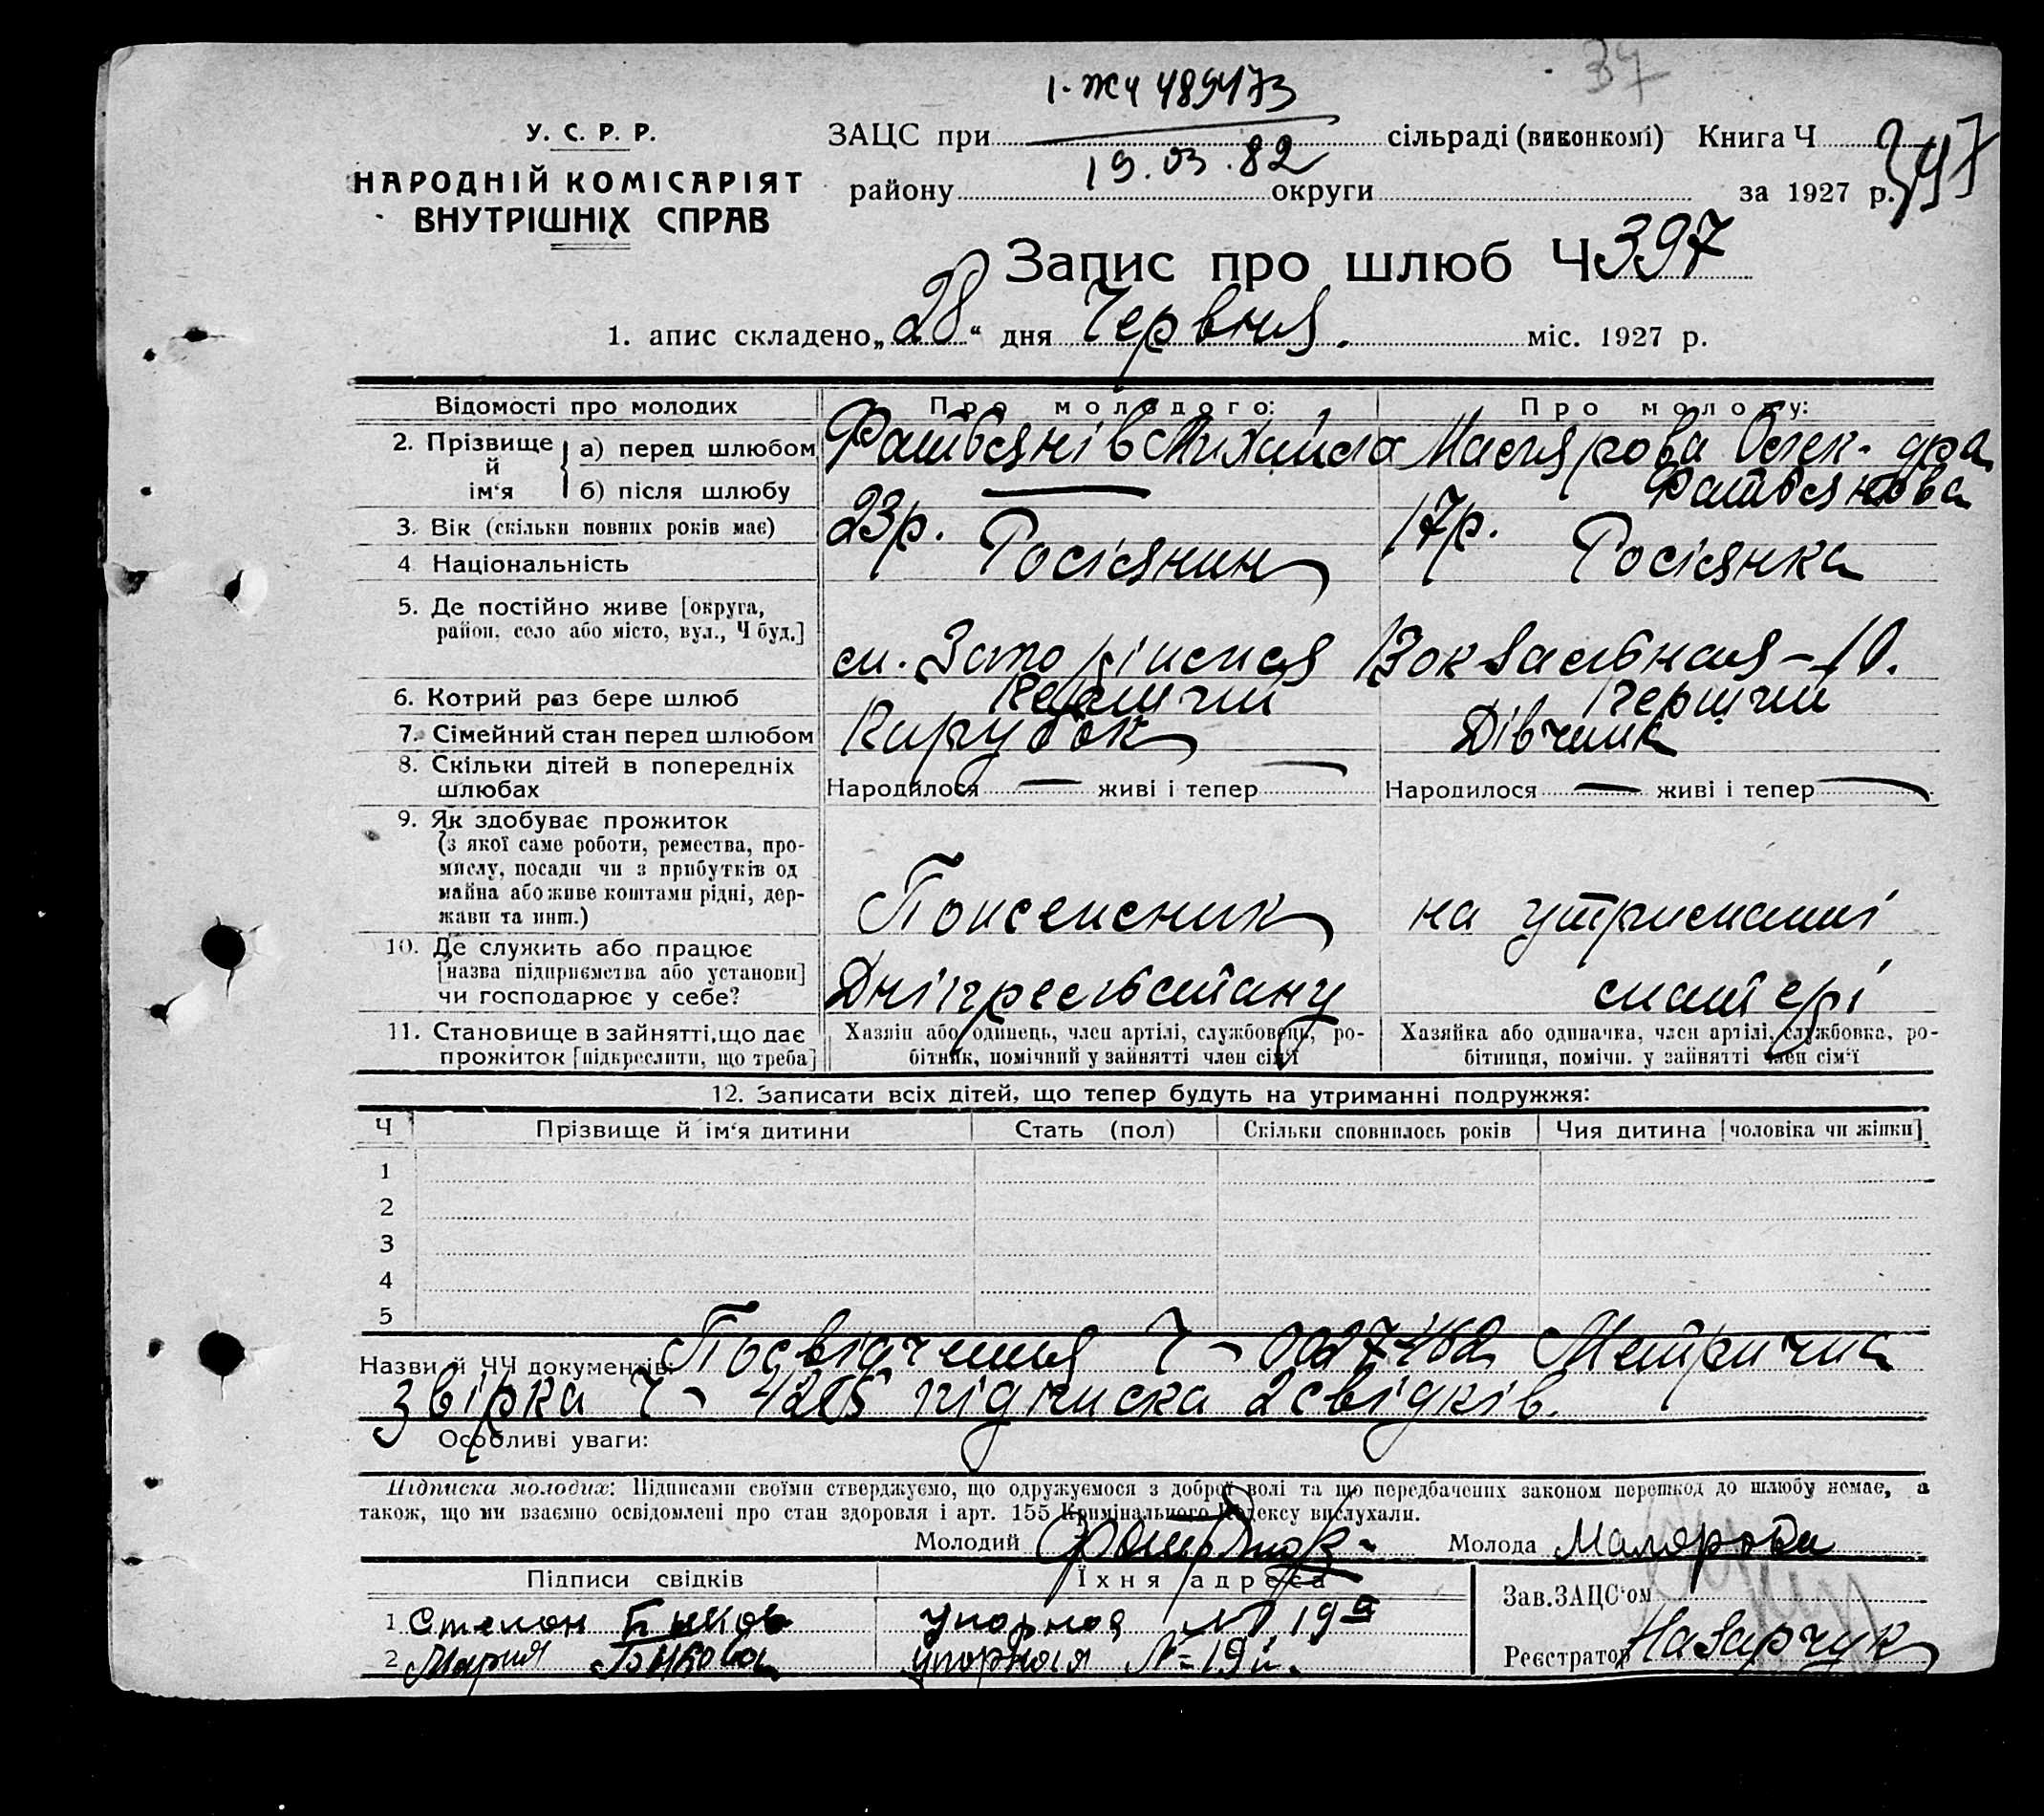 37
1-ЖЧ 489473
У. С. Р. Р.
ЗАЦС при сільраді (виконкомі) Книга Ч
19.03.82
397
НАРОДНІЙ КОМІСАРІЯТ
ВНУТРІШНІХ СПРАВ
району округи за 1927 р.
Запис про шлюб Ч 397
1. апис складено „28“ дня Червня. міс. 1927 р.
Відомості про молодих Про молодого: Про молоду:
2. Прізвище й ім‘я а) перед шлюбом
б) після шлюбу
3. Вік (скільки повних років має) 23р. 17р.
4 Національність Росіянин Росіянка
5. Де постійно живе [округа,
район, село або місто, вул., Ч буд.]
м. Запоріжжя Вокзальная – 10.
6. Котрий раз бере шлюб Перший Перший
7. Сімейний стан перед шлюбом Парубок
8. Скільки дітей в попередніх
шлюбах
Народилося — живі і тепер — Народилося — живі і тепер —
9. Як здобуває прожиток
(з якої саме роботи, ремества, про-
мислу, посади чи з прибутків од
майна або живе коштами рідні, дер-
жави та инш.)
на утриманні
10. Де служить або працює
[назва підприємства або установи]
чи господарює у себе?
матері
11. Становище в зайнятті, що дає
прожиток [підкреслити, що треба]
Хазяїн або одинець, член артілі, службовець, ро-
бітник, помічний у зайнятті член сім‘ї
Хазяйка або одиначка, член артілі, службовка, ро-
бітниця, помічн. у зайнятті член сім‘ї
12. Записати всіх дітей, що тепер будуть на утриманні подружжя:
Ч Прізвище й ім‘я дитини Стать (пол) Скільки сповнилось років Чия дитина [чоловіка чи жінки]
1
2
3
4
5
Назви й ЧЧ документів: Посвідчення Ч – Метрична
звірка Ч – підписка 2 свідків.
Особливі уваги:
Підписка молодих: Підписами своїми стверджуємо, що одружуємося з доброї волі та що передбачених законом перешкод до шлюбу немає, а
також, що ми взаємно освідомлені про стан здоровля і арт. 155 Кримінального Кодексу вислухали.
Молодий Молода
Підписи свідків Їхня адреса
Зав. ЗАЦС‘ом
1 Степан Биков Упорная № 19а
2 Мария Бикова упорная №
Реєстратор Назарчук